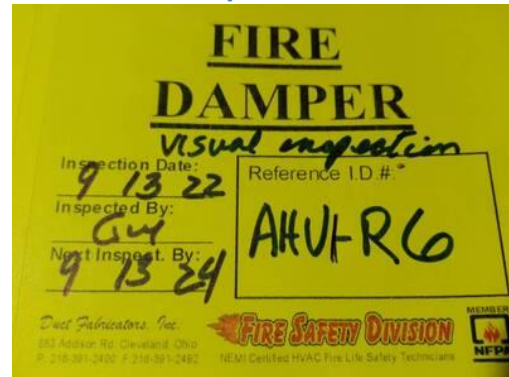 FIRE
DAMPER
visual inspection
Inspection Date:
9 13 22
Inspected By:
Guy
Next Inspect. By:
9 13 24
Reference I.D.#:
AHU1-R6
Duct Fabricators, Inc.
883 Addison Rd. Cleveland, Ohio
P: 216-391-2400 F: 216-391-2492
FIRE SAFETY DIVISION
NEMI Certified HVAC Fire Life Safety Technicians
MEMBER
NFPA